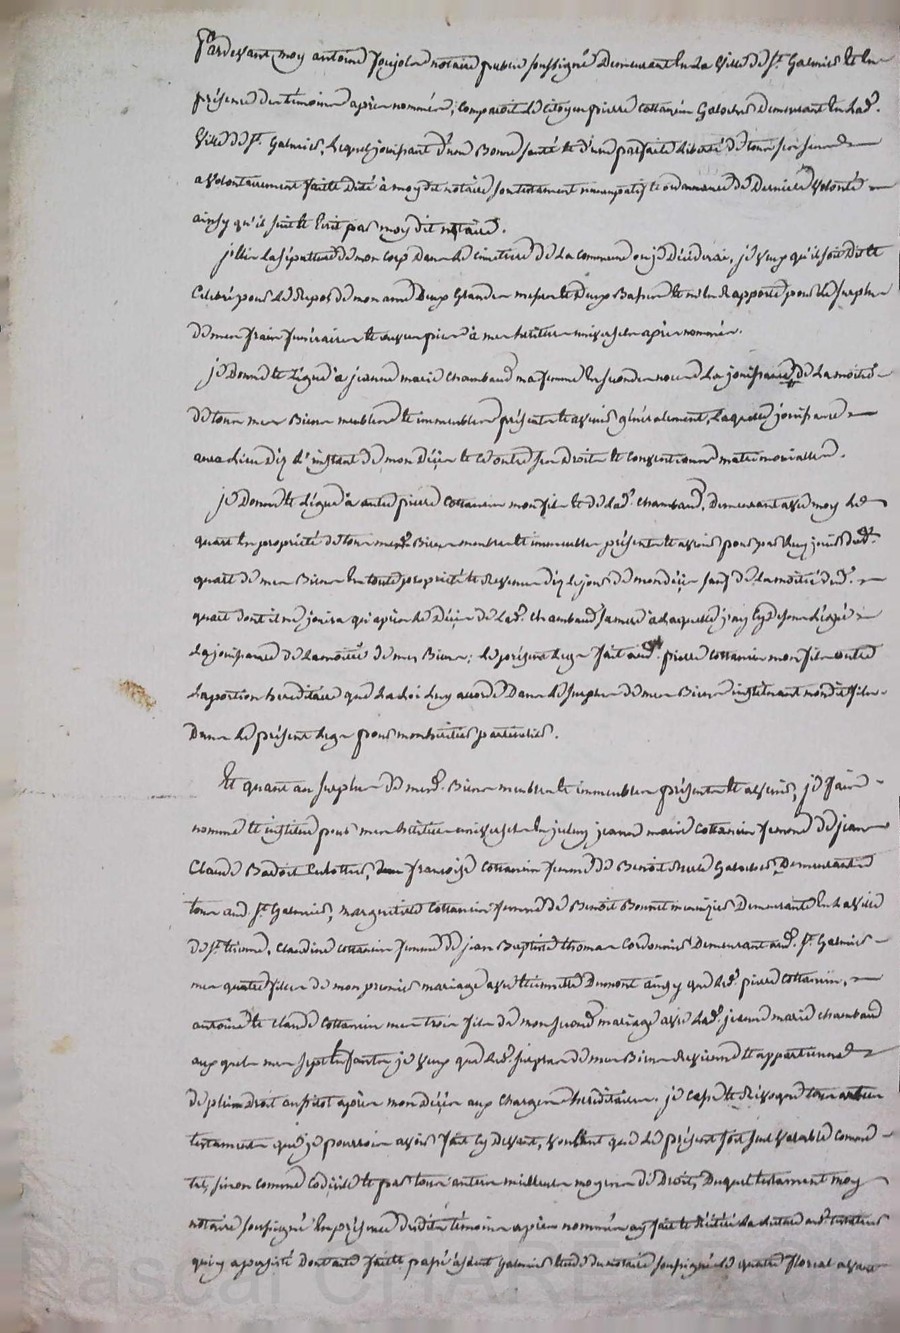 Pardevant moy antoine Poujol notaire public soussigné Demeurant En La Ville De St Galmier Et En
présence Des témoins après nommés, comparoit Le Citoyen pierre Cottancin Galocher Demeurant En Lad.
Ville De St Galmier, Lequel jouissant D'une Bonne santé et d'une parfaite Liberté De tous ses sens
a volontairement faite Dité à moy dit notaire son testament noncupatif et ordonnance De Derniere volonté
ainsy qu'il suit et Ecrit par moy dit notaire.
j'Elis La sépulture De mon corp Dans Le cimetiere De La Commune ou je Décéderai, je veux qu'il soit Dit et
Celebré pour Le Repos De mon ame Deux Grandes messes et Deux Basses et m'En Rapporte pour Le surplus
De mes frais funéraires et œuvres pies à mes heritiers universels après nommés.
je Donne et Légue à jeanne marie Chambaud ma femme En secondes noces La jouissance De La moitié
De tous mes Biens meubles et immeubles présents et avenir généralement, Laquelle jouissance
aura Lieu Dez L'instant De mon Décès et ce outre ses Droits et Conventions matrimonialles.
je Donne et Légue à autre pierre Cottancin mon fils et De Lad. Chambaud, Demeurant avec moy Le
quart En propriété De tous mesd. Biens meubles et immeubles présents et avenir pour par Luy jouir Dud.
quart De mes Biens En toute propriété et Revenus Dez Le jour De mon Décès sauf De La moitié Dud.
quart dont il ne jouira qu'après Le Décès De Lad. Chambaud sa mere à Laquelle j'ay Cy Dessus Légué
La jouissance De La moitié De mes Biens; Le présent Legs fait aud. pierre Cottancin mon fils outre
La portion hereditaire que La Loi Luy accorde Dans Le surplus De mes Biens instituant mondit fils
Dans Le présent Legs pour mon héritier particulier.
Et quant au surplus De mesd. Biens meubles et immeubles présents et avenir, je fais
nomme et institue pour mes héritiers universels En iceluy jeanne marie Cottancin femme De jean
Claude Badoit Culottier, françoise Cottancin femme De Benoit Galocher, Demeurant
tous aud. St Galmier, margueritte Cottancin femme De Benoit Bonnet menuisier Demeurant En La Ville
De St Etienne, Claudine Cottancin femme De jean Baptiste thomas Cordonnier Demeurant aud. St Galmier
mes quatre filles De mon premier mariage avec Etiennette Dumont ainsy que Led. pierre Cottancin,
antoine et Claude Cottancin mes trois fils De mon second mariage avec Lad. jeanne marie Chambaud
aux quels mes sept Enfants je veux que Led. surplus De mes Biens Revienne et appartienne
De plein Droit aussitot après mon Décès aux charges héréditaires. je Casse et Révoque tous autres
testaments que je pourrois avoir fait Cy Devant, voulant que Le présent soit seul valable comme
tel, sinon comme Codicile et par tous autres meilleurs moyens De Droit, Duquel testament moy
notaire soussigné En présence Desdits témoins après nommés ay fait et Réitéré La Lecture aud. testateur
qui y a persisté Dont acte faitte passé à saint Galmier Etude Du notaire soussigné Le quatre floreal avant